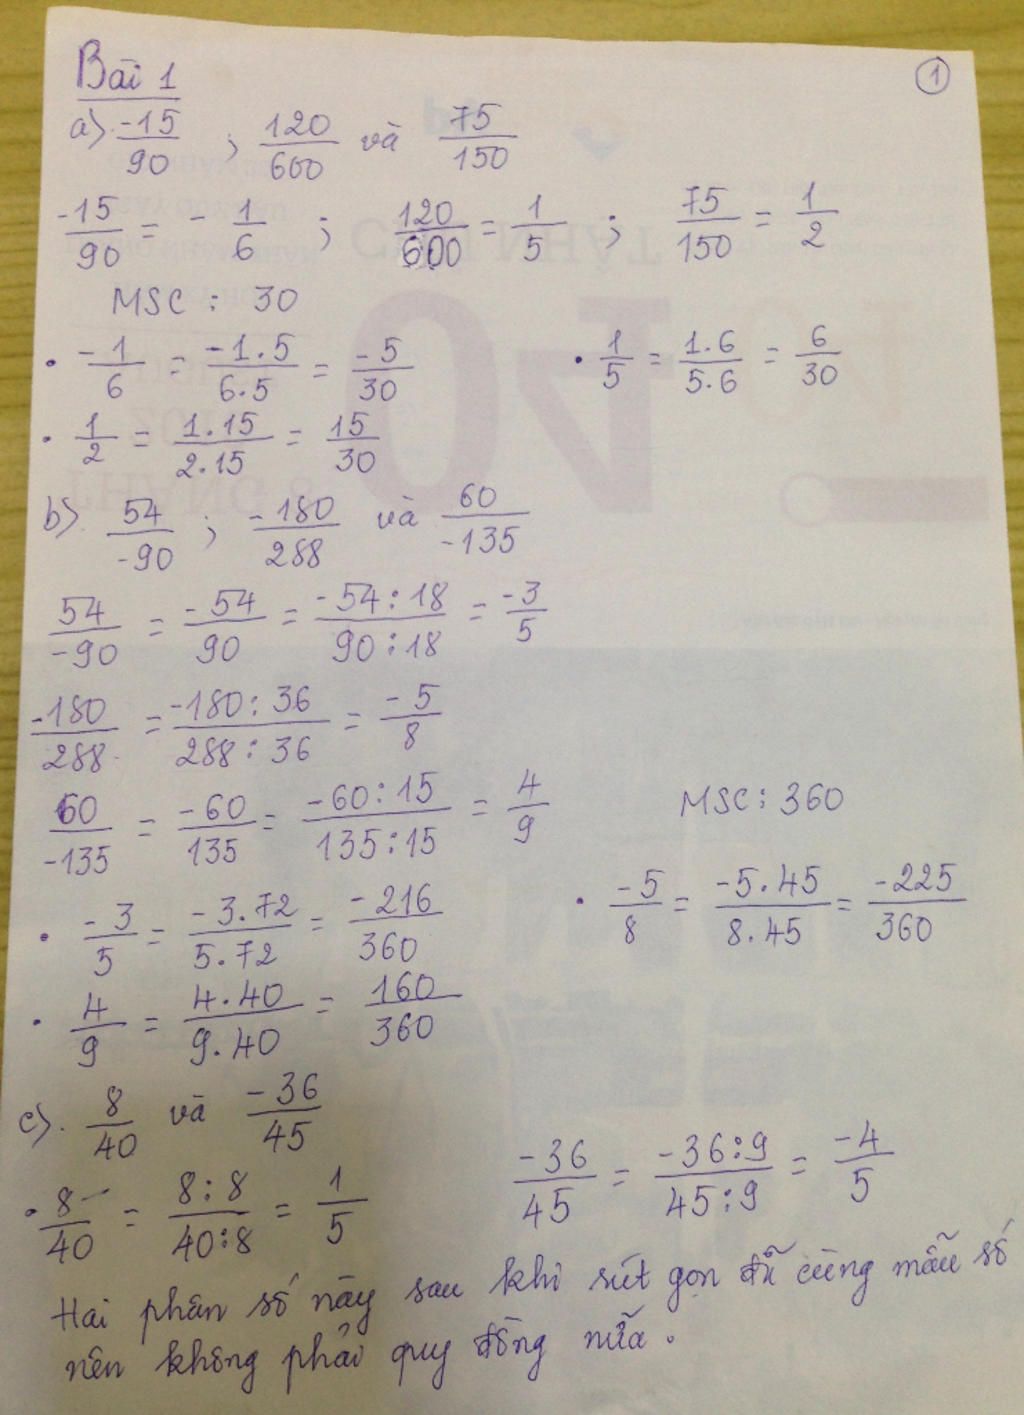 Bài 1
①
a) -15/90 ; 120/600 và 75/150
-15/90 = - 1/6 ; 120/600 = 1/5 ; 75/150 = 1/2
MSC : 30
• -1/6 = -1.5/6.5 = -5/30 • 1/5 = 1.6/5.6 = 6/30
• 1/2 = 1.15/2.15 = 15/30
b) 54/-90 ; -180/288 và 60/-135
54/-90 = -54/90 = -54:18/90:18 = -3/5
-180/288 = -180:36/288:36 = -5/8
60/-135 = -60/135 = -60:15/135:15 = 4/9 MSC: 360
• -3/5 = -3.72/5.72 = -216/360 • -5/8 = -5.45/8.45 = -225/360
• 4/9 = 4.40/9.40 = 160/360
c) 8/40 và -36/45
• 8/40 = 8:8/40:8 = 1/5 -36/45 = -36:9/45:9 = -4/5
Hai phân số này sau khi rút gọn đã cùng mẫu số
nên không phải quy đồng nữa.